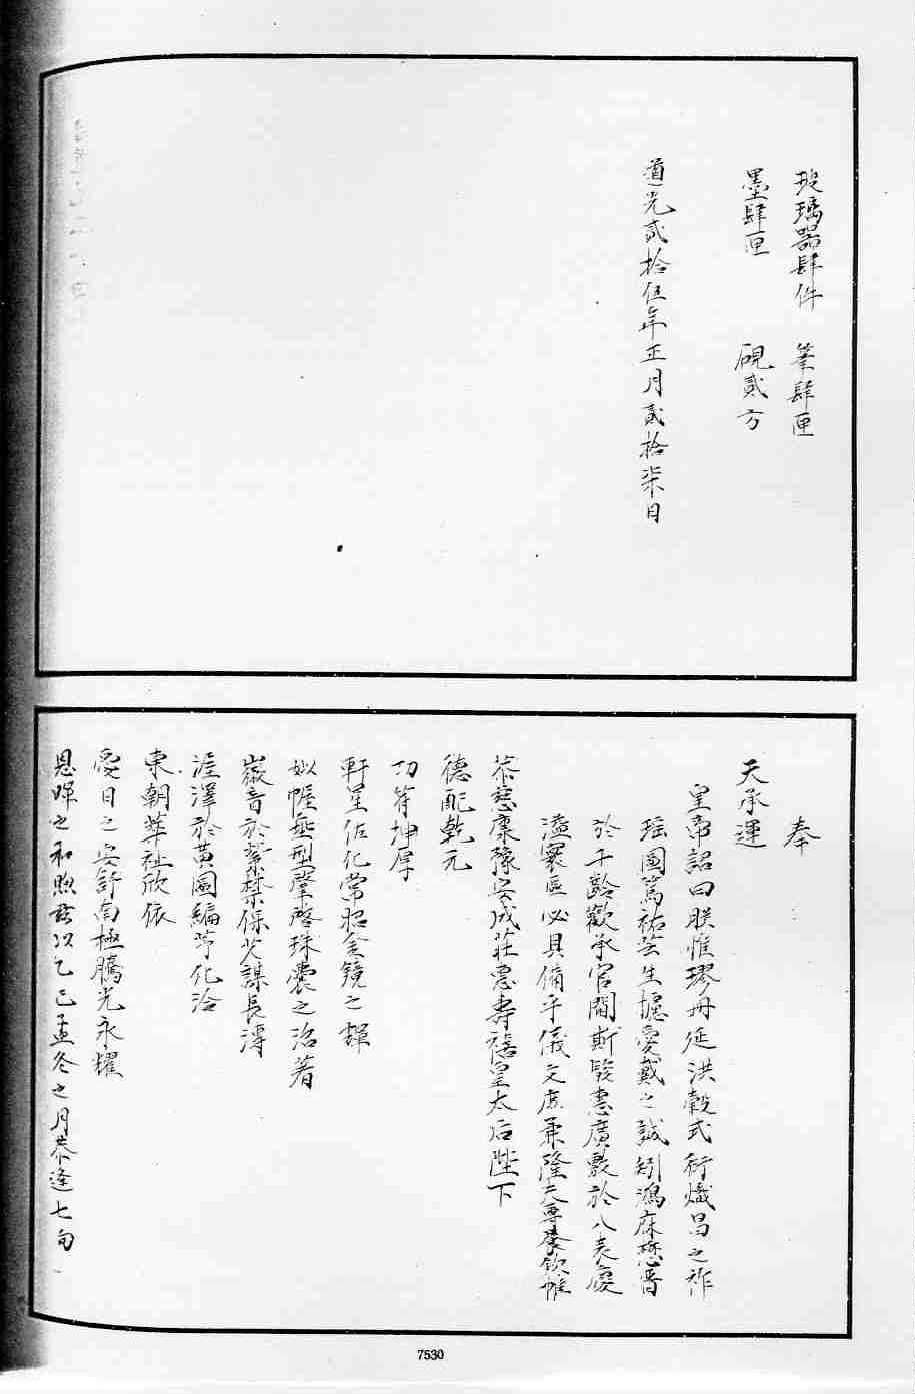 玻璃器肆件 筆肆匣
墨肆匣 硯貳方
道光貳拾伍年正月貳拾柒日
奉
天承運
皇帝詔曰朕惟璆冊延洪穀式衍熾昌之祚
瑶圖篤祜芸生攄愛戴之誠矧鴻庥懋晋
於千齡歡承宮閫斯駿惠廣敷於八表慶
溢寰區必具備乎儀文庶丕隆夫尊養欽惟
恭慈康豫安成莊惠壽禧皇太后陛下
德配乾元
功符坤厚
軒星佐化常昭金鏡之輝
姒幄垂型肇啓珠囊之洛著
徽音於紫禁保艾謀長溥
渥澤於黃圖編芧化洽
東朝華祉欣依
愛日之安舒南極騰光永耀
恩暉之和煦兹以乙巳孟冬之月恭逢七旬
7530